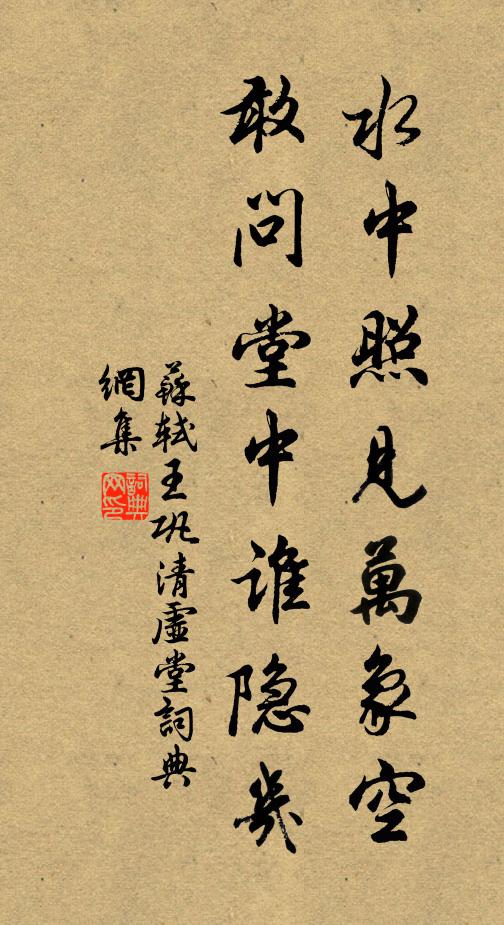 水中照見萬象空
敢問堂中誰隐几
蘇軾王巩清虛堂詞典
網集
詞典
网印